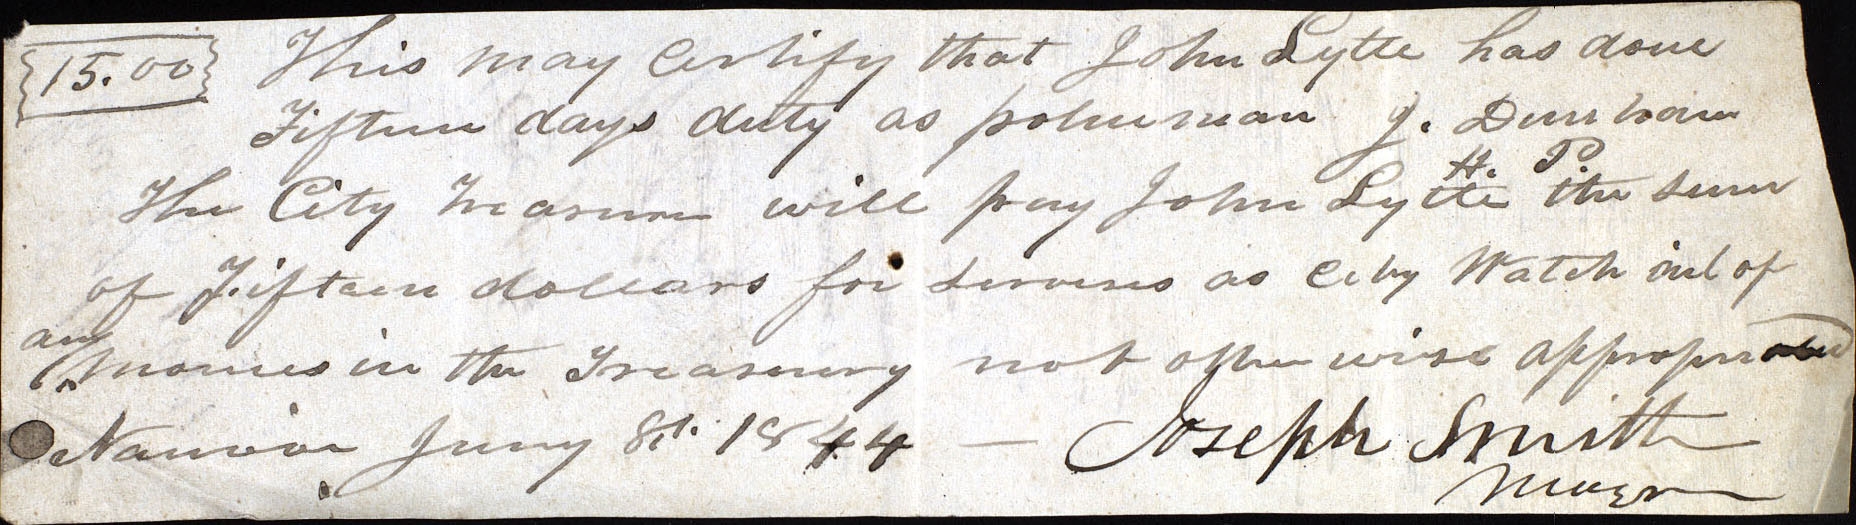 15.00 This may certify that John Lytle has done
Fifteen days duty as policeman J. Dunham
H. P.
The City Treasurer will pay John Lytle the sum
of Fifteen dollars for services as City Watch out of
any
monies in the Treasury not otherwise appropriated
Nauvoo July 8th. 1844 — Joseph Smith
Mayor